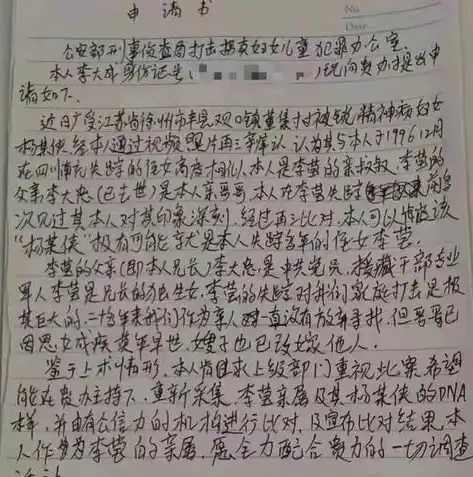 申请书
No.
Date
公安部刑事侦查局打击拐卖妇女儿童犯罪办公室
本人李大成身份证号( )现向贵办提出申
请如下.
近日广受江苏省徐州市丰县欢口镇董集村被锁精神病妇女
杨某侠,经本人通过视频照片再三辨认,认为其与本人于1996.12月
在四川南充失踪的侄女高度相似.本人是李莹的亲叔叔,李莹的
父亲李大忠(已去世)是本人亲哥哥,本人在李莹失踪前多
次见过其本人对其印象深刻,经过再三比对,本人可以情
该
"杨某侠"极有可能就是本人失踪多年的侄女李莹.
李莹的父亲(即本人兄长)李大忠,是中共党员,援藏干部专业
军人,李莹是兄长的独生女,李莹的失踪对我们家庭打击是极
其巨大的,二十多年来我们作为亲人一直没有放弃寻找,但哥哥已
因思女成疾英年早世,嫂子也已改嫁他人.
鉴于上术情形,本人肯请求上级部门重视此案,希望
能在贵办主持下,重新采集李莹亲属及其杨某侠的DNA
样,并由有公信力的机构进行比对,及宣布比对结果,本
人作为李莹的亲属,愿全力配合贵方的一切调查